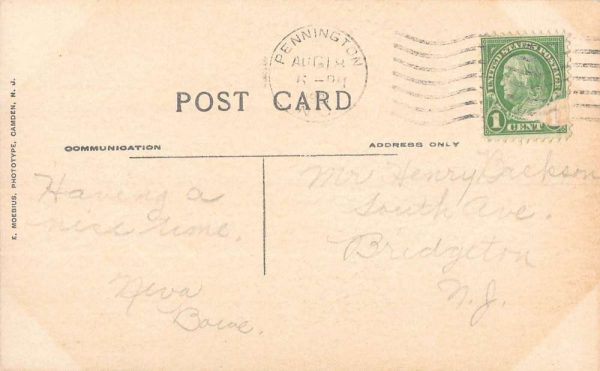 PENNINGTON
AUG 18
N.J.
UNITED STATES POSTAGE
1 CENT
POST CARD
COMMUNICATION
ADDRESS ONLY
E. MOEBIUS, PHOTOTYPE, CAMDEN, N. J.
Having a
nice time.
Neva
Mr Henry
South Ave.
Bridgeton
N.J.